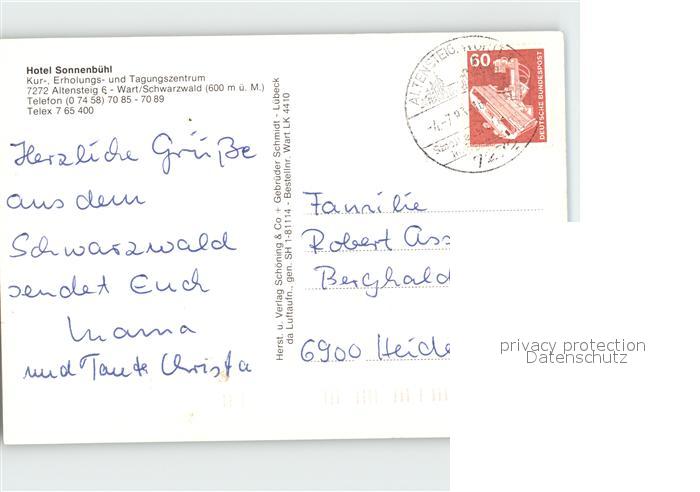 Hotel Sonnenbühl
Kur-, Erholungs- und Tagungszentrum
7272 Altensteig 6 - Wart/Schwarzwald (600 m ü. M.)
Telefon (0 74 58) 70 85 - 70 89
Telex 7 65 400
Herzliche Grüße
aus dem
Schwarzwald
sendet Euch
Mama
und Tante Christa
Herst. u. Verlag Schöning & Co + Gebrüder Schmidt - Lübeck
da Luftaufn. gen. SH 1-81114 - Bestellnr. Wart LK 4410
ALTENSTEIG, WÜRTT
60
DEUTSCHE BUNDESPOST
Familie
Robert Ass
Berghald
6900 Heide
privacy protection
Datenschutz